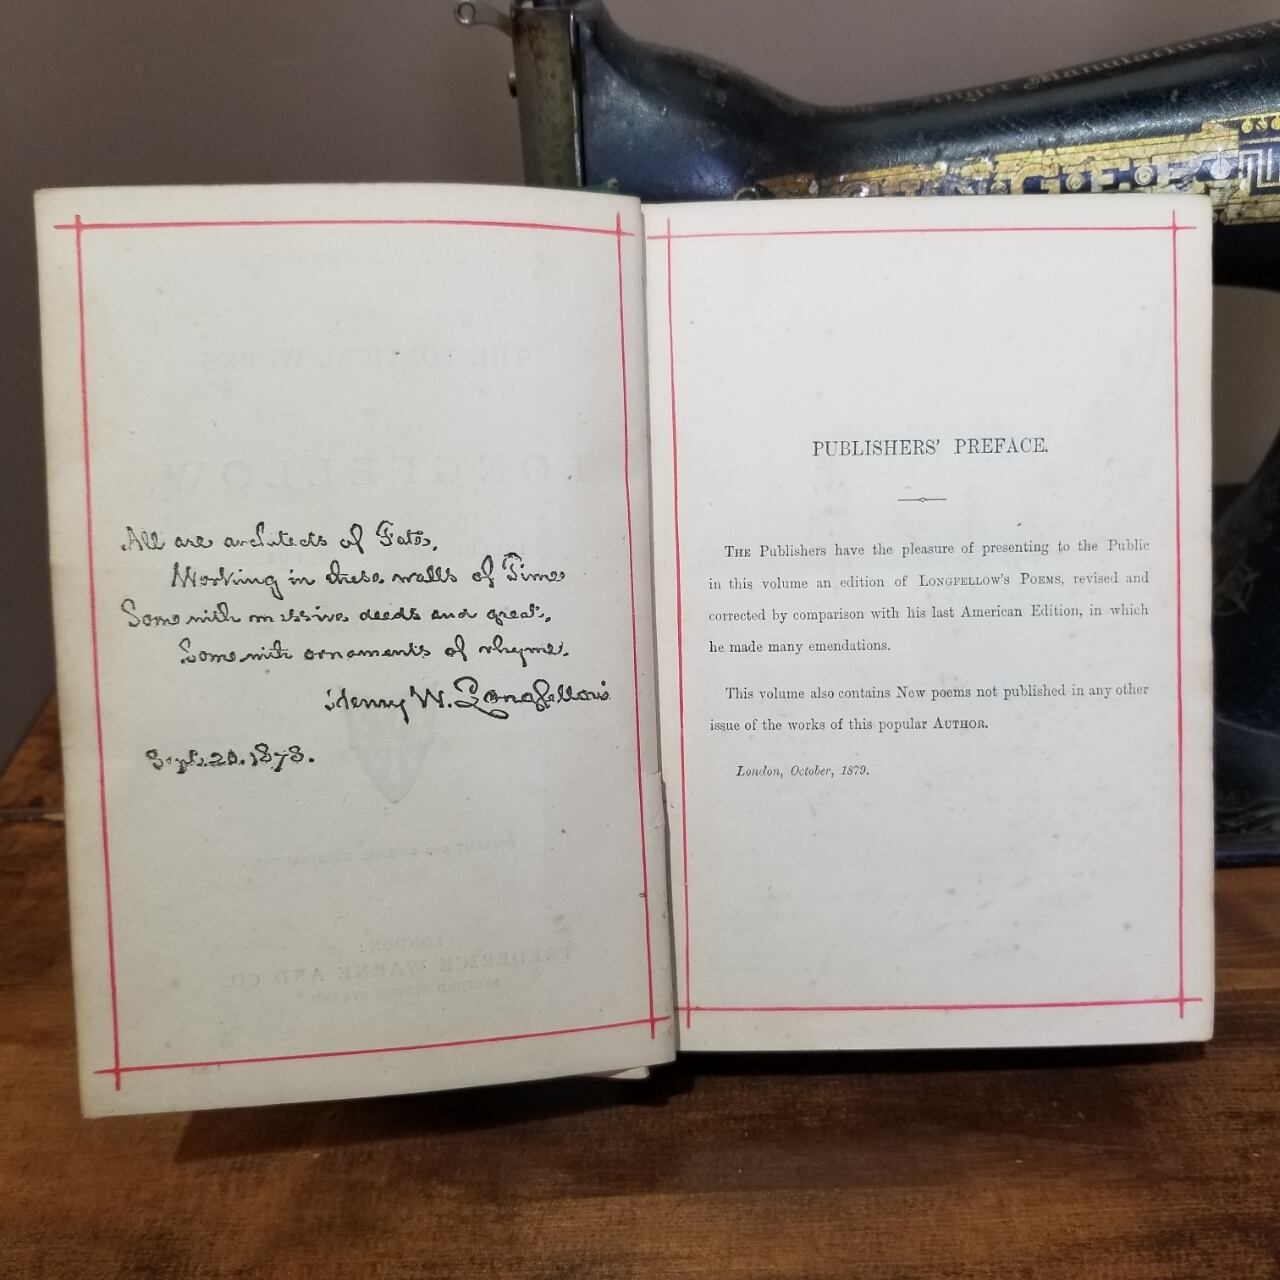 All are architects of Fate,
Working in these walls of Time
Some with massive deeds and great,
Some with ornaments of rhyme.
Henry W. Longfellow
Sept. 20. 1878.
PUBLISHERS' PREFACE.
THE Publishers have the pleasure of presenting to the Public
in this volume an edition of LONGFELLOW'S POEMS, revised and
corrected by comparison with his last American Edition, in which
he made many emendations.
This volume also contains New poems not published in any other
issue of the works of this popular AUTHOR.
London, October, 1879.
Singer Manufacturing
SINGER
THE POETICAL WORKS
OF
LONGFELLOW.
PORTRAIT AND ORIGINAL ILLUSTRATIONS.
LONDON:
FREDERICK WARNE AND CO.,
BEDFORD STREET, STRAND.